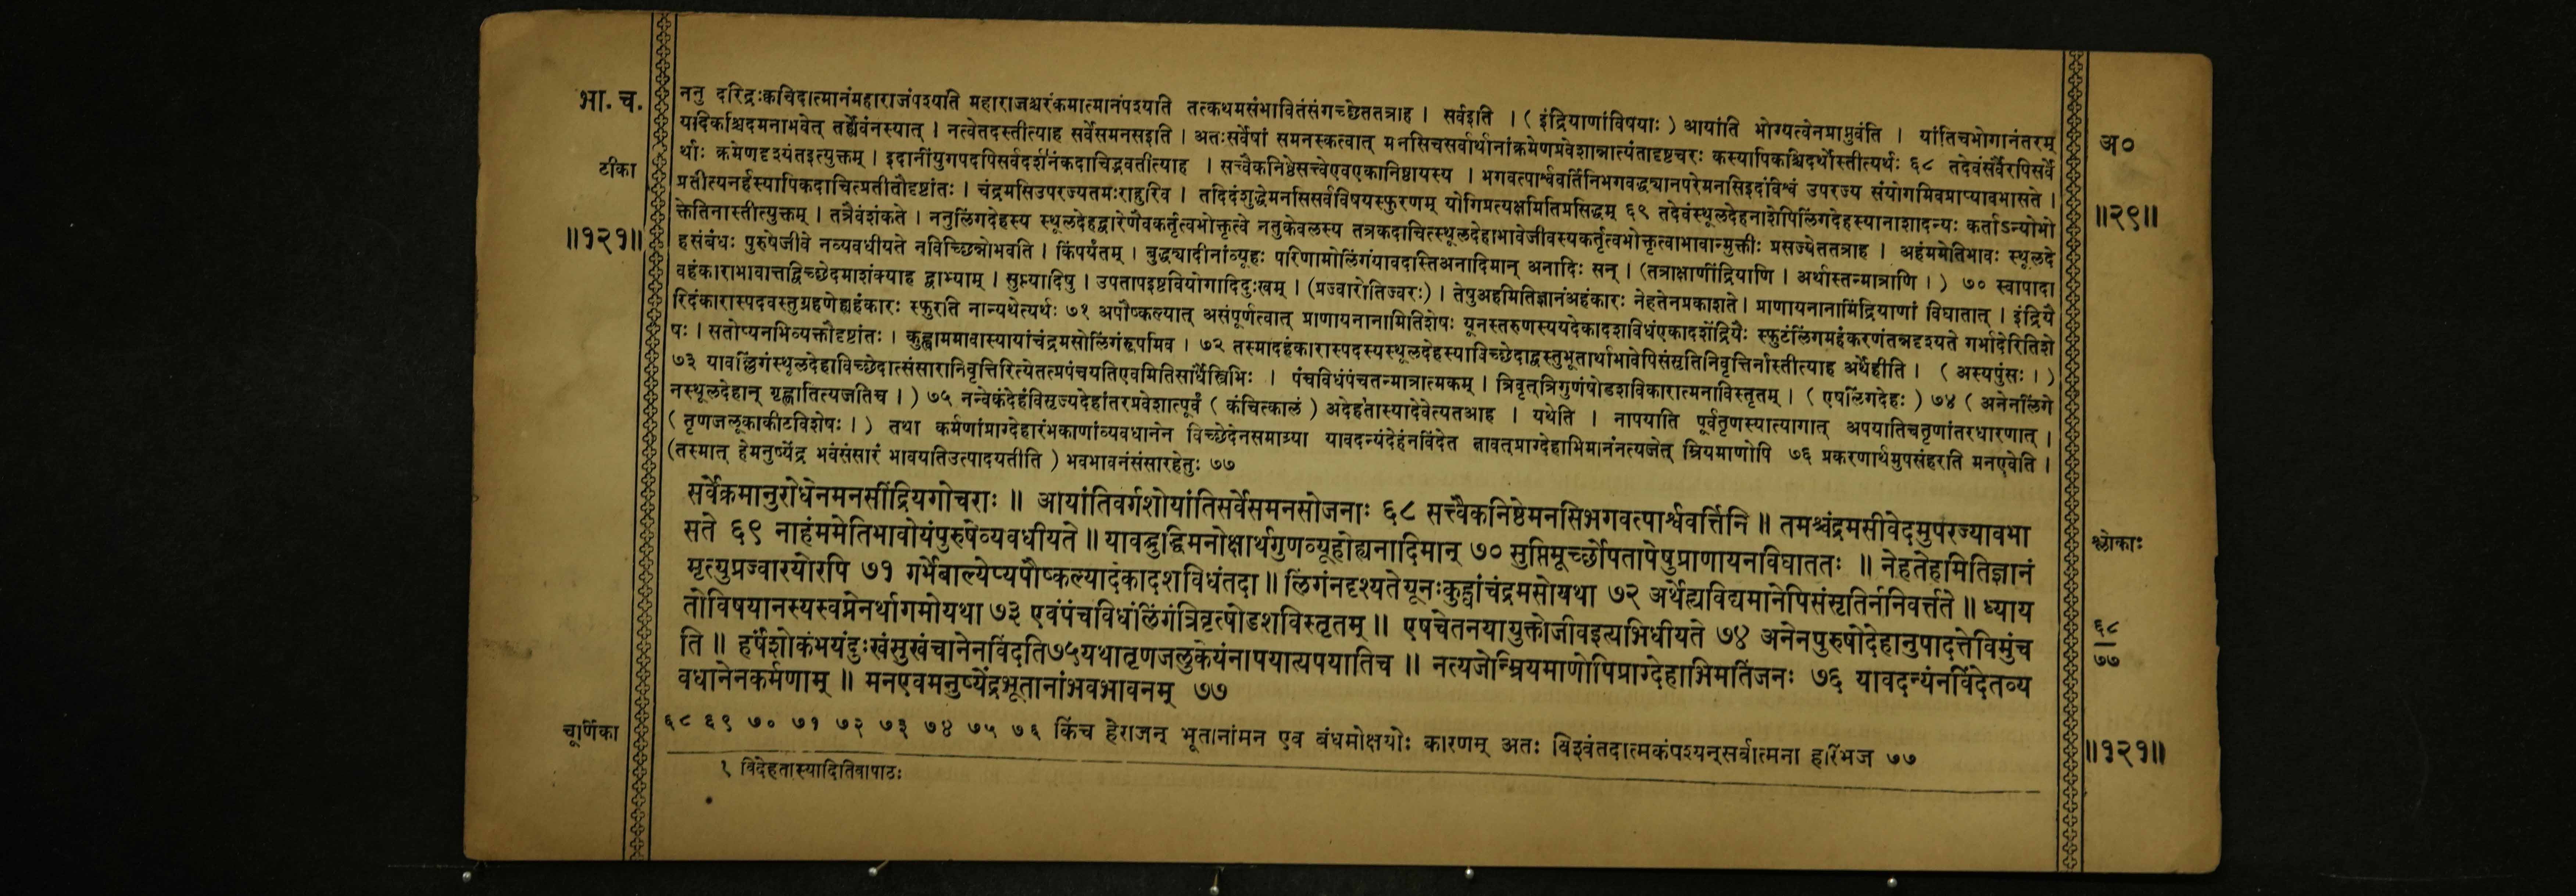 भा. च.
टीका
॥१२१॥
ननु दरिद्रःक्वचिदात्मानंमहाराजंपश्यति महाराजश्चरंकमात्मानंपश्यति तत्कथमसंभावितंसंगच्छेततत्राह । सर्वइति । ( इंद्रियाणांविषयाः ) आयांति भोग्यत्वेनप्राप्नुवंति । यांतिचभोगानंतरम्
यदिकश्चिदमनाभवेत् तर्ह्येवंनस्यात् । नत्वेतदस्तीत्याह सर्वेसमनसइति । अतःसर्वेषां समनस्कत्वात् मनसिचसर्वार्थानांक्रमेणप्रवेशान्नात्यंतादृष्टचरः कस्यापिकश्चिदर्थोस्तीत्यर्थः ६८ तदेवंसर्वैरपिसर्वे
र्थाः क्रमेणदृश्यंतइत्युक्तम् । इदानींयुगपदपिसर्वदर्शनंकदाचिद्भवतीत्याह । सत्त्वैकनिष्ठेसत्त्वेएवएकानिष्ठायस्य । भगवत्पार्श्ववर्तिनिभगवद्ध्यानपरेमनसिइदंविश्वं उपरज्य संयोगमिवप्राप्यावभासते ।
प्रतीत्यनर्हस्यापिकदाचित्प्रतीतौदृष्टांतः । चंद्रमसिउपरज्यतमःराहुरिव । तदिदंशुद्धेमनसिसर्वविषयस्फुरणम् योगिप्रत्यक्षमितिप्रसिद्धम् ६९ तदेवंस्थूलदेहनाशेपिलिंगदेहस्यानाशादन्यः कर्ताऽन्योभो
क्तेतिनास्तीत्युक्तम् । तत्रैवंशंकते । ननुलिंगदेहस्य स्थूलदेहद्वारेणैवकर्तृत्वभोक्तृत्वे नतुकेवलस्य तत्रकदाचित्स्थूलदेहाभावेजीवस्यकर्तृत्वभोक्तृत्वाभावान्मुक्तीः प्रसज्येततत्राह । अहंममेतिभावः स्थूलदे
हसंबंधः पुरुषेजीवे नव्यवधीयते नविच्छिन्नोभवति । किंपर्यंतम् । बुद्ध्यादीनांव्यूहः परिणामोलिंगंयावदस्तिअनादिमान् अनादिः सन् । (तत्राक्षाणींद्रियाणि । अर्थास्तन्मात्राणि । ) ७० स्वापादा
वहंकाराभावात्तद्विच्छेदमाशंक्याह द्वाभ्याम् । सुप्त्यादिषु । उपतापइष्टवियोगादिदुःखम् । (प्रज्वारोतिज्वरः) । तेषुअहमितिज्ञानंअहंकारः नेहतेनप्रकाशते । प्राणायनानामिंद्रियाणां विघातात् । इंद्रियै
रिदंकारास्पदवस्तुग्रहणेह्यहंकारः स्फुरति नान्यथेत्यर्थः ७१ अपौष्कल्यात् असंपूर्णत्वात् प्राणायनानामितिशेषः यूनस्तरुणस्ययदेकादशविधंएकादशेंद्रियैः स्फुटंलिंगमहंकरणंतन्नदृश्यते गर्भादेरितिशे
षः । सतोप्यनभिव्यक्तौदृष्टांतः । कुह्वाममावास्यायांचंद्रमसोलिंगंरूपमिव । ७२ तस्मादहंकारास्पदस्यस्थूलदेहस्याविच्छेदाद्वस्तुभूतार्थाभावेपिसंसृतिनिवृत्तिर्नास्तीत्याह अर्थेहीति । ( अस्यपुंसः । )
७३ यावल्लिंगंस्थूलदेहाविच्छेदात्संसारानिवृत्तिरित्येतत्प्रपंचयतिएवमितिसार्धैस्त्रिभिः । पंचविधंपंचतन्मात्रात्मकम् । त्रिवृत्त्रिगुणंषोडशविकारात्मनाविस्तृतम् । ( एषलिंगदेहः ) ७४ ( अनेनलिंगे
नस्थूलदेहान् गृह्णातित्यजतिच । ) ७५ नन्वेकंदेहंविसृज्यदेहांतरप्रवेशात्पूर्वं ( कंचित्कालं ) अदेहतास्यादेवेत्यतआह । यथेति । नापयाति पूर्वतृणस्यात्यागात् अपयातिचतृणांतरधारणात् ।
( तृणजलूकाकीटविशेषः । ) तथा कर्मणांप्राग्देहारंभकाणांव्यवधानेन विच्छेदेनसमाप्त्या यावदन्यंदेहंनविंदेत तावत्प्राग्देहाभिमानंनत्यजेत् म्रियमाणोपि ७६ प्रकरणार्थमुपसंहरति मनएवेति ।
(तस्मात् हेमनुष्येंद्र भवंसंसारं भावयतिउत्पादयतीति ) भवभावनंसंसारहेतुः ७७
सर्वेक्रमानुरोधेनमनसींद्रियगोचराः ॥ आयांतिवर्गशोयांतिसर्वेसमनसोजनाः ६८ सत्त्वैकनिष्ठेमनसिभगवत्पार्श्ववर्त्तिनि ॥ तमश्चंद्रमसीवेदमुपरज्यावभा
सते ६९ नाहंममेतिभावोयंपुरुषेव्यवधीयते ॥ यावद्बुद्धिमनोक्षार्थगुणव्यूहोह्यनादिमान् ७० सुप्तिमूर्च्छोपतापेषुप्राणायनविघाततः ॥ नेहतेहमितिज्ञानं
मृत्युप्रज्वारयोरपि ७१ गर्भेबाल्येप्यपौष्कल्यादेकादशविधंतदा ॥ लिंगंनदृश्यतेयूनःकुह्वांचंद्रमसोयथा ७२ अर्थेह्यविद्यमानेपिसंसृतिर्ननिवर्त्तते ॥ ध्याय
तोविषयानस्यस्वप्नेनर्थागमोयथा ७३ एवंपंचविधंलिंगंत्रिवृत्षोडशविस्तृतम् ॥ एषचेतनयायुक्तोजीवइत्यभिधीयते ७४ अनेनपुरुषोदेहानुपादत्तेविमुंच
ति ॥ हर्षंशोकंभयंदुःखंसुखंचानेनविंदति७५यथातृणजलुकेयंनापयात्यपयातिच ॥ नत्यजेन्म्रियमाणोपिप्राग्देहाभिमतिंजनः ७६ यावदन्यंनविंदेतव्य
वधानेनकर्मणाम् ॥ मनएवमनुष्येंद्रभूतानांभवभावनम् ७७
चूर्णिका
६८ ६९ ७० ७१ ७२ ७३ ७४ ७५ ७६ किंच हेराजन् भूतानांमन एव बंधमोक्षयोः कारणम् अतः विश्वंतदात्मकंपश्यन्सर्वात्मना हरिंभज ७७
१ विदेहतास्यादितिवापाठः
अ०
॥२९॥
श्लोकाः
६८
७७
॥१२१॥